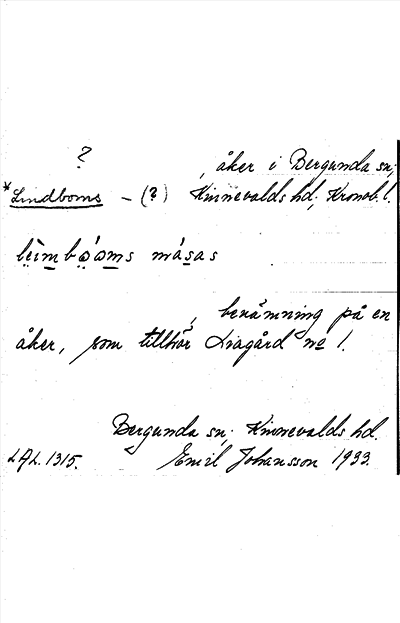 ?
, åker i Bergunda sn;
*Lindboms – (?) Kinnevalds hd; Kronob. l.
, benämning på en
åker, som tillhör Liagård nº 1.
Bergunda sn; Kinnevalds hd.
LAL. 1315. Emil Johansson 1933.